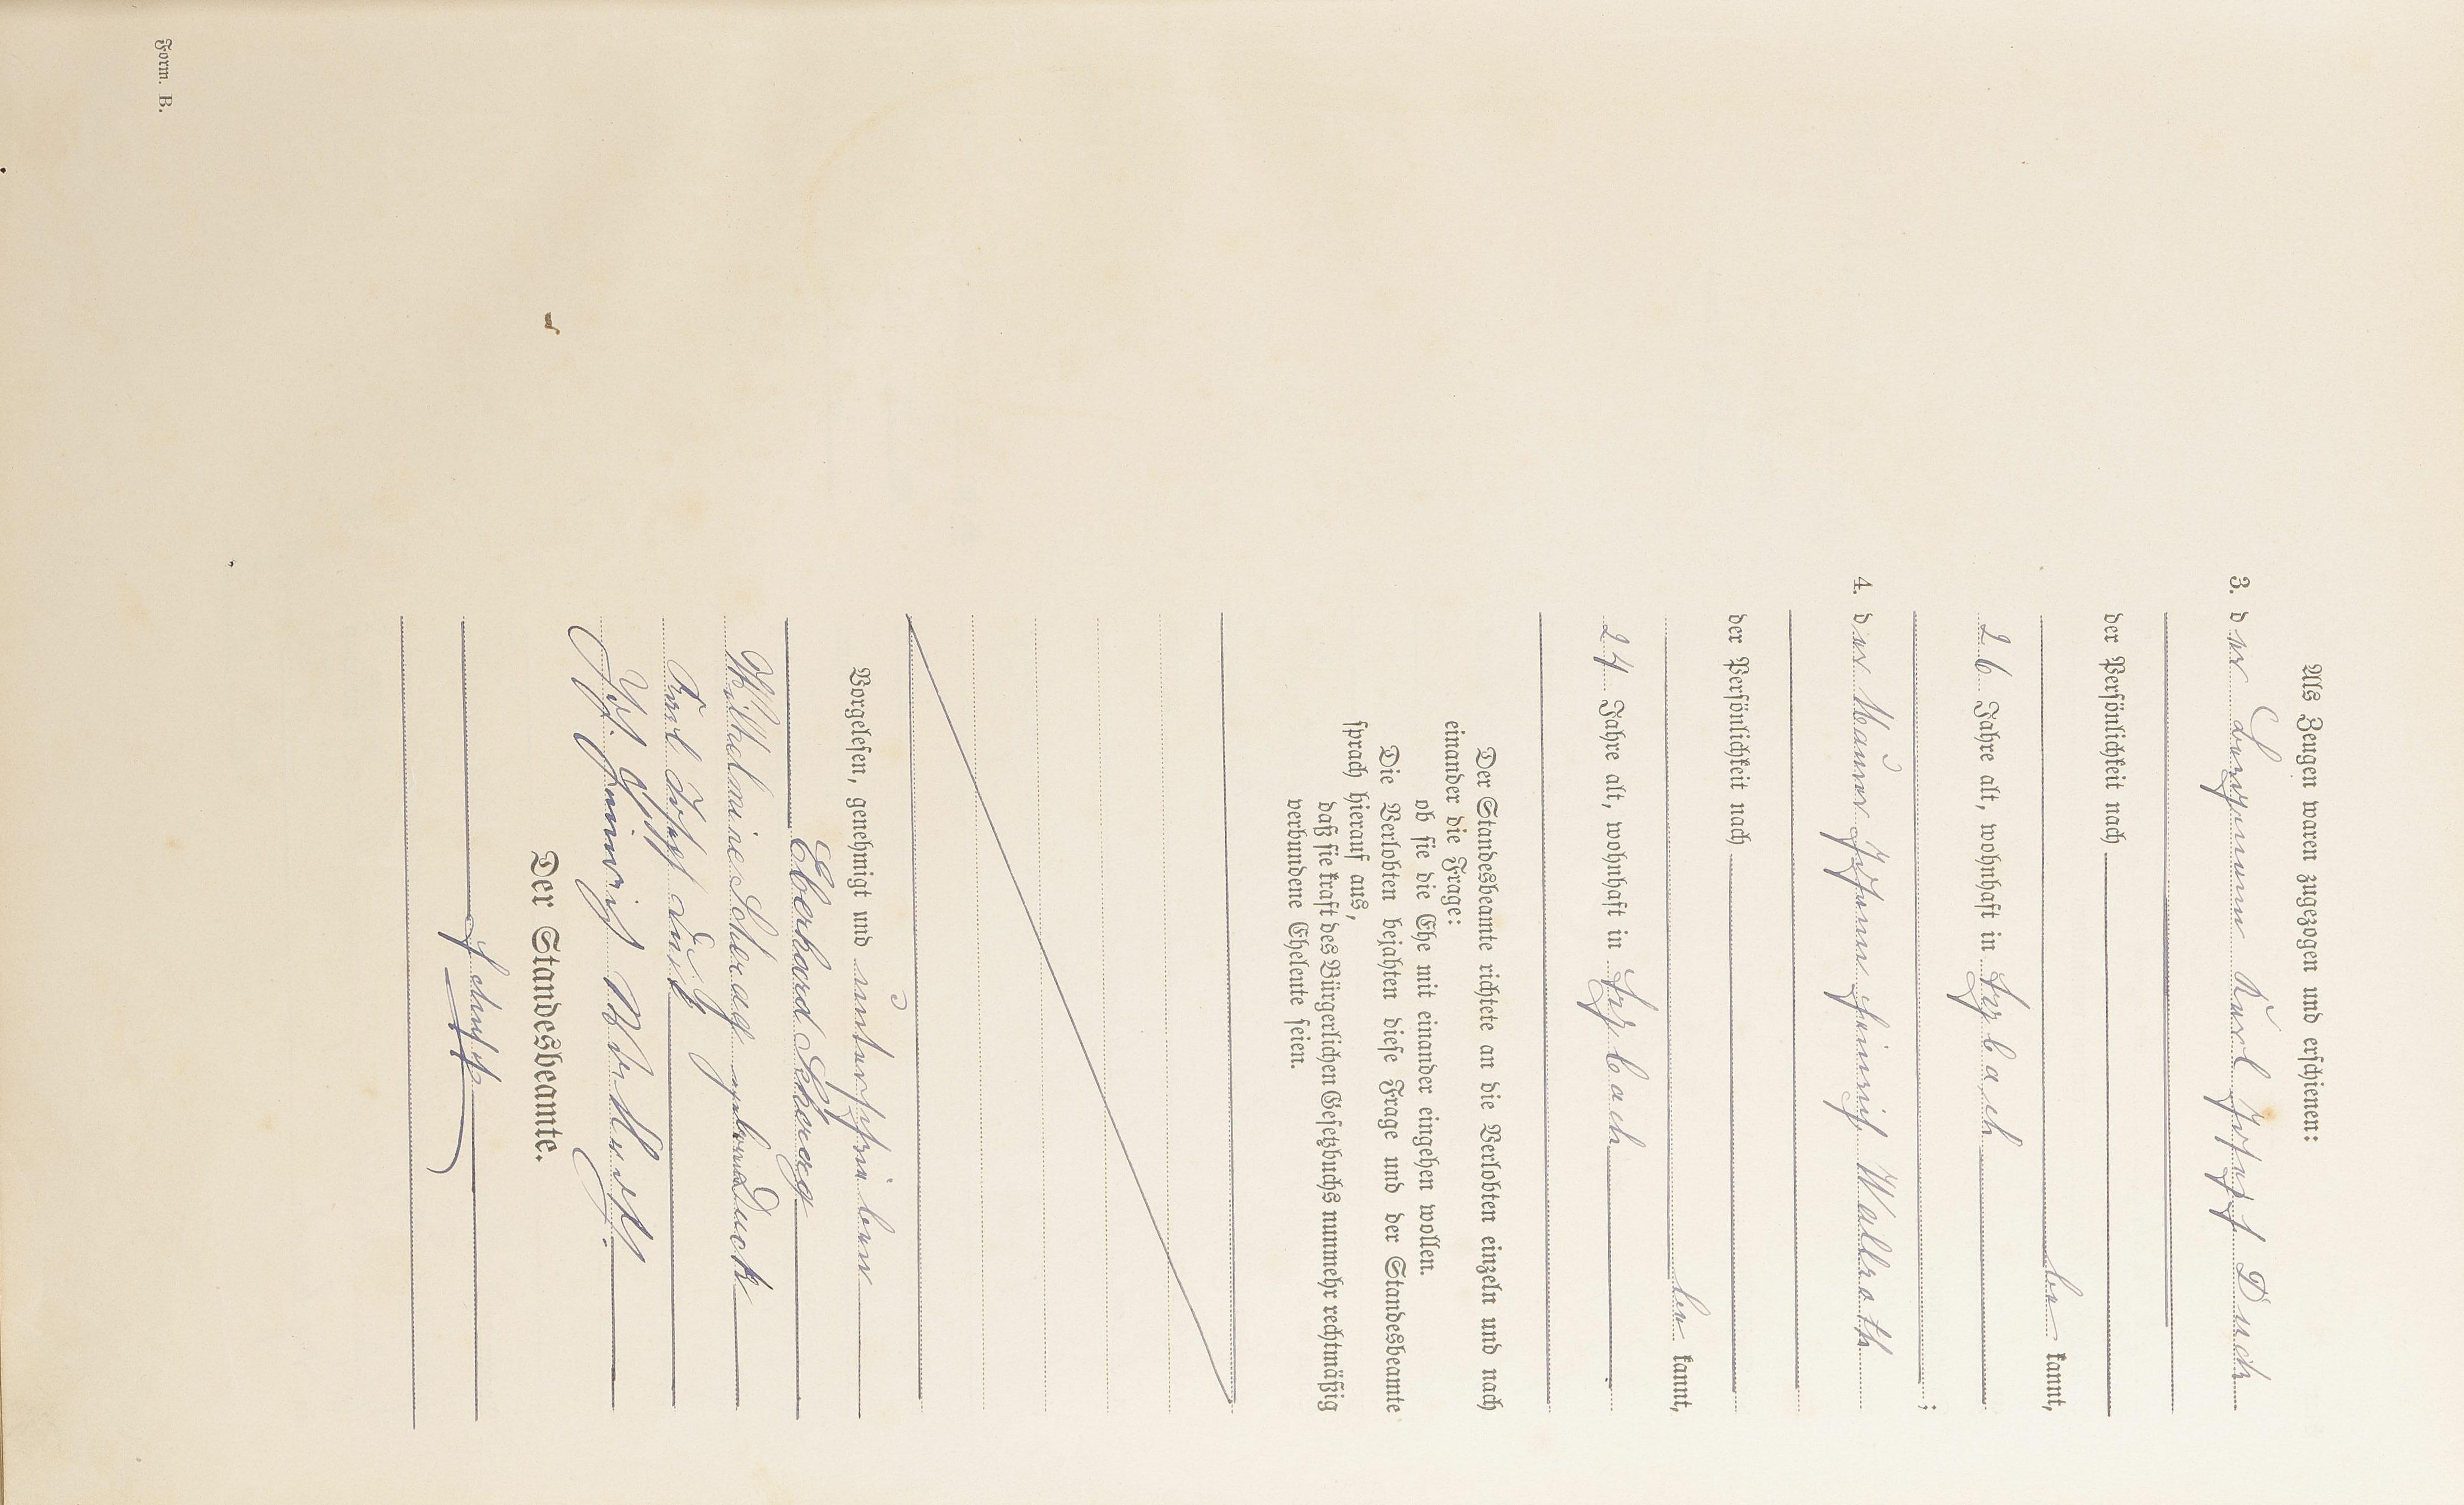 Als Zeugen waren zugezogen und erschienen:
3. der Bergmann Karl Josef Duck
der Persönlichkeit nach
be kannt,
26 Jahre alt, wohnhaft in Arzbach
;
4. der Maurer Johann Heinrich Wallroth
der Persönlichkeit nach
be kannt,
24 Jahre alt, wohnhaft in Arzbach
Der Standesbeamte richtete an die Verlobten einzeln und nach
einander die Frage:
ob sie die Ehe mit einander eingehen wollen.
Die Verlobten bejahten diese Frage und der Standesbeamte
sprach hierauf aus,
daß sie kraft des Bürgerlichen Gesetzbuchs nunmehr rechtmäßig
verbundene Eheleute seien.
Vorgelesen, genehmigt und unterschrieben
Eberhard Scherag
Wilhelmine Scherag geborne Duck
Karl Josef Duck
Joh. Heinrich Wallroth.
Der Standesbeamte.
Form. B.